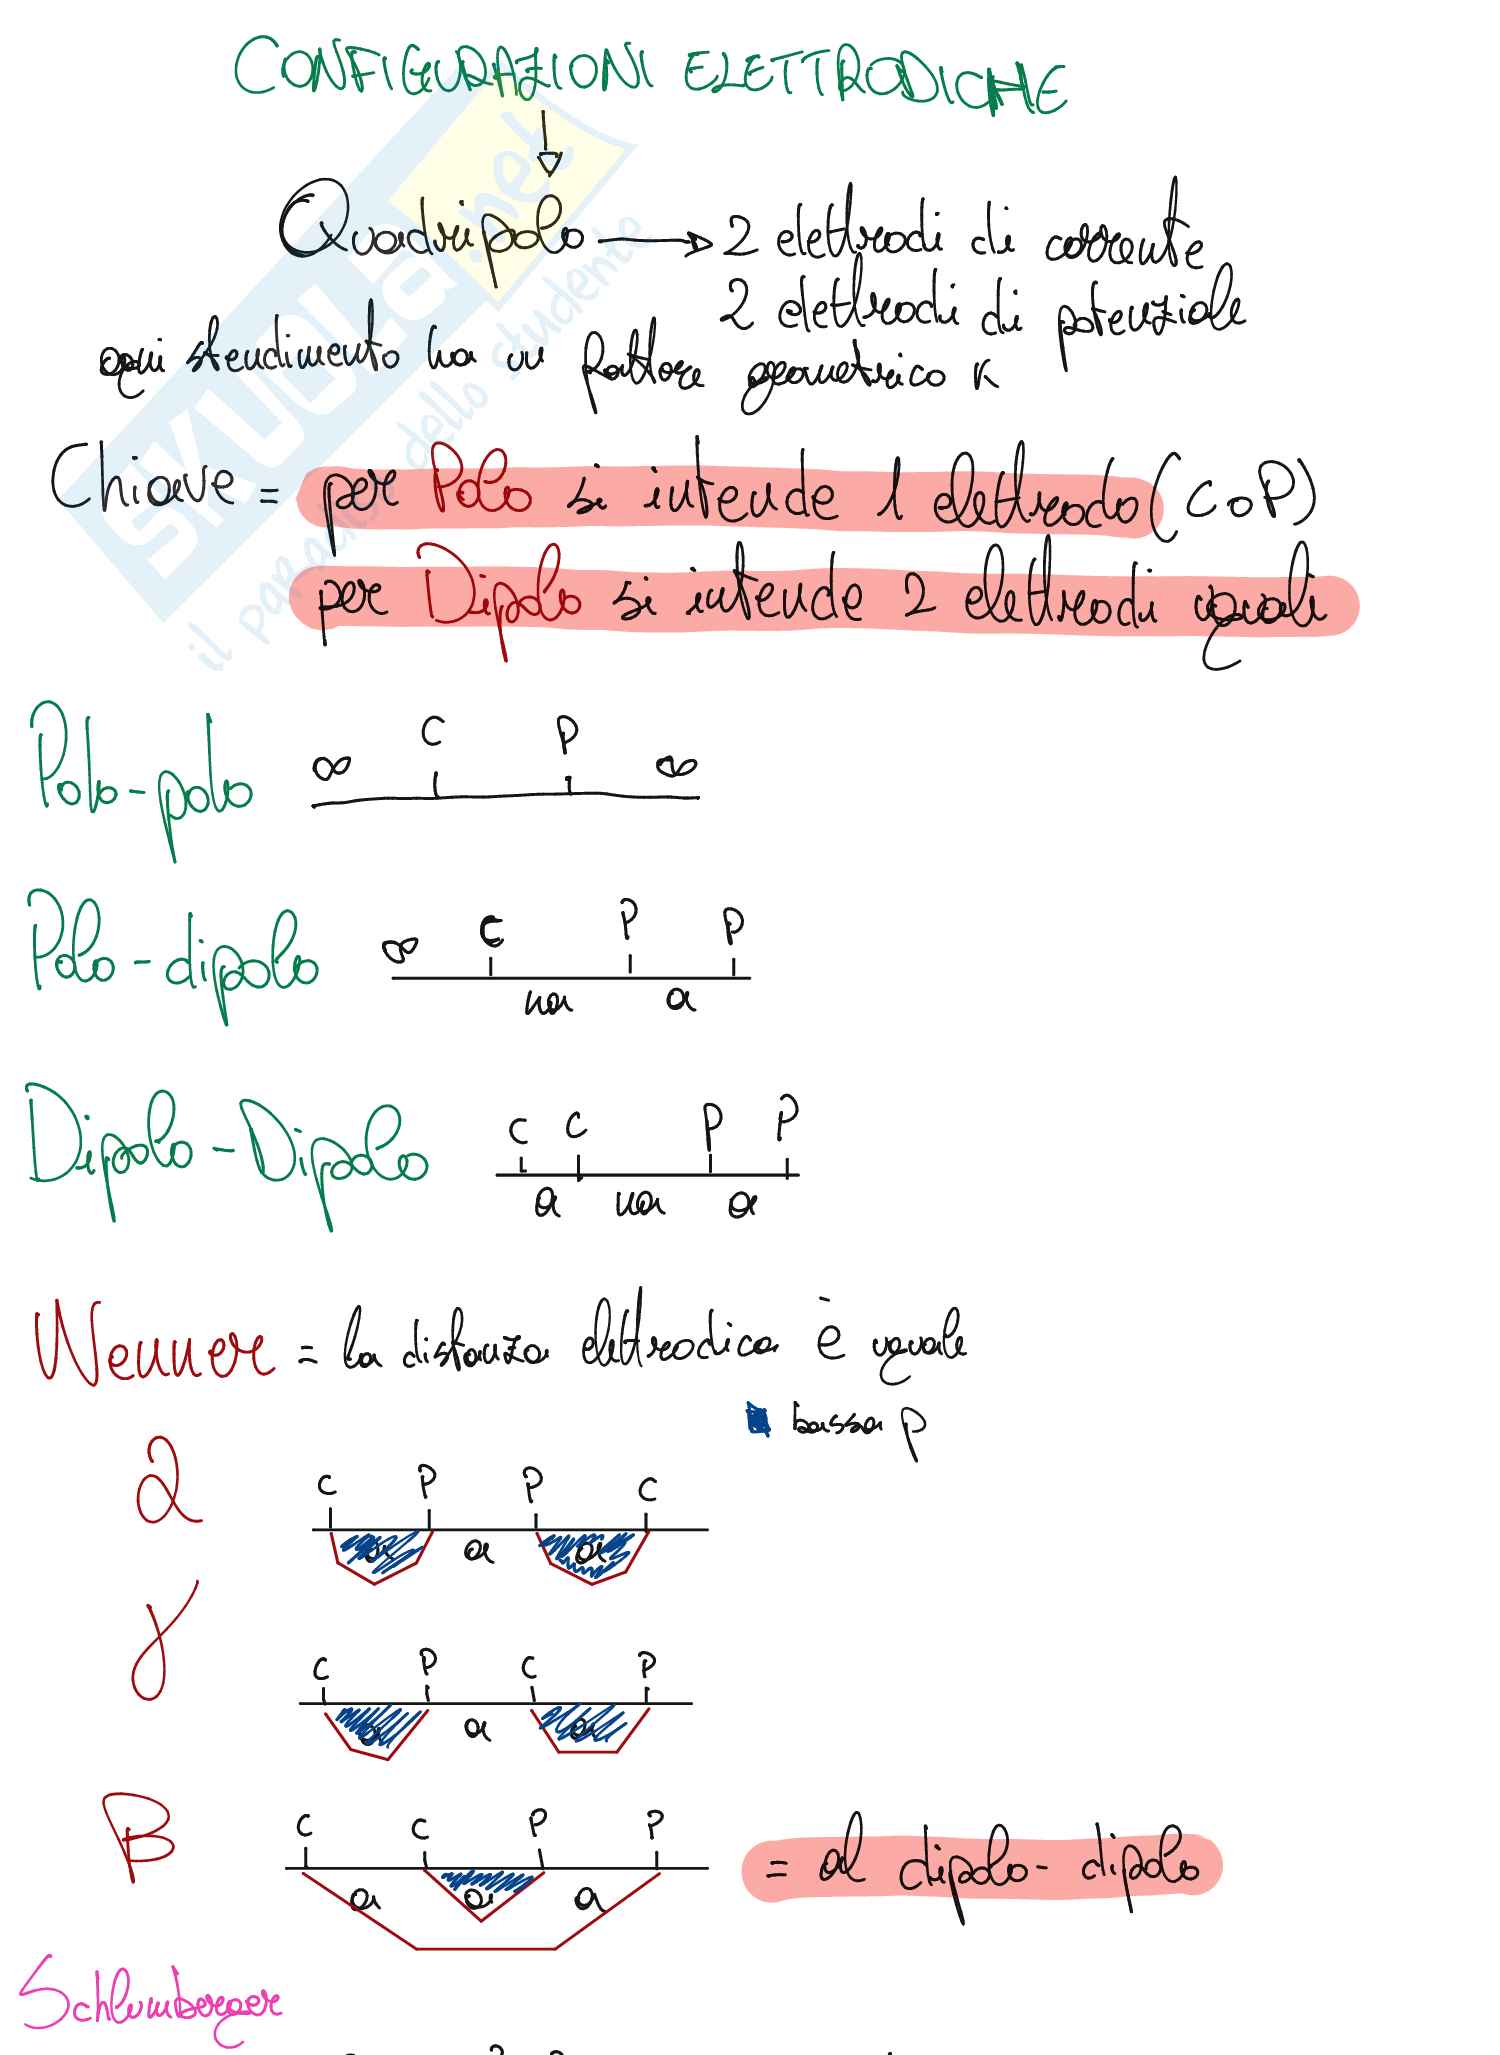 CONFIGURAZIONI ELETTRODICHE
Quadripolo → 2 elettrodi di corrente
2 elettrodi di potenziale
ogni stendimento ha un fattore geometrico K
Chiave = per Polo si intende 1 elettrodo (C o P)
per Dipolo si intende 2 elettrodi uguali
SKUOLA.net
il paradiso dello studente
Polo-polo
∞ C P ∞
Polo-dipolo
∞ C P P
na a
Dipolo-Dipolo
C C P P
a na a
Wenner = la distanza elettrodica è uguale
bassa ρ
α
C P P C
a a a
γ
C P C P
a a a
B
C C P P
a a a
= al dipolo-dipolo
Schlumberger